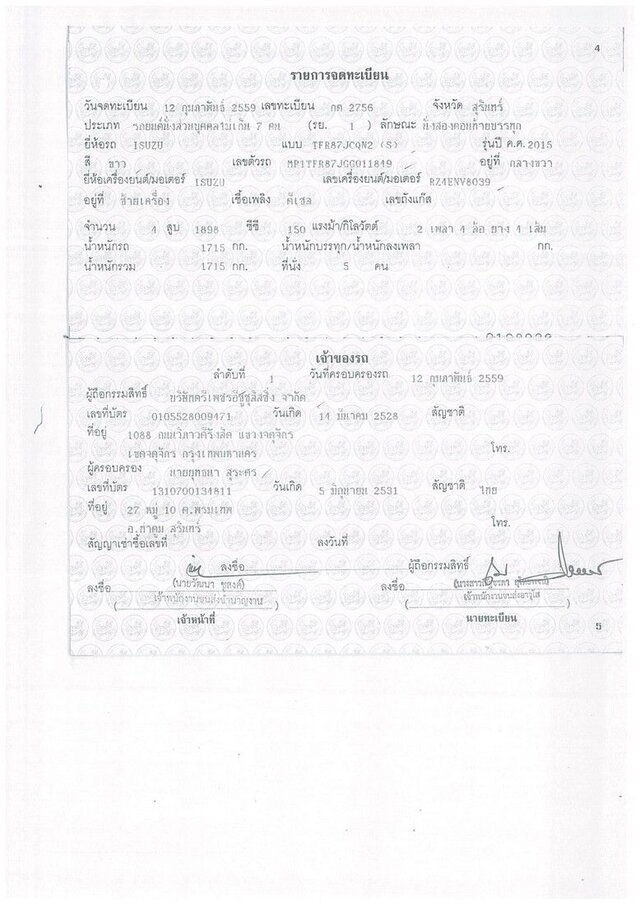 4
รายการจดทะเบียน
วันจดทะเบียน 12 กุมภาพันธ์ 2559 เลขทะเบียน กด 2756 จังหวัด สุรินทร์
ประเภท รถยนต์นั่งส่วนบุคคลไม่เกิน 7 คน (รย. 1 ) ลักษณะ นั่งสองตอนท้ายบรรทุก
ยี่ห้อรถ ISUZU แบบ TFR87JCQN2 (S) รุ่นปี ค.ศ. 2015
สี ขาว เลขตัวรถ MP1TFR87JGG011849 อยู่ที่ กลางขวา
ยี่ห้อเครื่องยนต์/มอเตอร์ ISUZU เลขเครื่องยนต์/มอเตอร์ RZ4ENV8039
อยู่ที่ ซ้ายเครื่อง เชื้อเพลิง ดีเซล เลขถังแก๊ส
จำนวน 4 สูบ 1898 ซีซี 150 แรงม้า/กิโลวัตต์ 2 เพลา 4 ล้อ ยาง 4 เส้น
น้ำหนักรถ 1715 กก. น้ำหนักบรรทุก/น้ำหนักลงเพลา กก.
น้ำหนักรวม 1715 กก. ที่นั่ง 5 คน
เจ้าของรถ
ลำดับที่ 1 วันที่ครอบครองรถ 12 กุมภาพันธ์ 2559
ผู้ถือกรรมสิทธิ์ บริษัทตรีเพชรอีซูซุลิสซิ่ง จำกัด
เลขที่บัตร 0105528009471 วันเกิด 14 มีนาคม 2528 สัญชาติ
ที่อยู่ 1088 ถนนวิภาวดีรังสิต แขวงจตุจักร
เขตจตุจักร กรุงเทพมหานคร โทร.
ผู้ครอบครอง นายยุทธนา สุระศร
เลขที่บัตร 1310700134811 วันเกิด 5 มิถุนายน 2531 สัญชาติ ไทย
ที่อยู่ 27 หมู่ 10 ต.พรมเทพ
อ.ท่าตูม สุรินทร์ โทร.
สัญญาเช่าซื้อเลขที่ ลงวันที่
ลงชื่อ ผู้ถือกรรมสิทธิ์
ลงชื่อ (นายวัฒนา ชูสงค์) ลงชื่อ
เจ้าพนักงานขนส่งชำนาญงาน เจ้าพนักงานขนส่งอาวุโส
เจ้าหน้าที่ นายทะเบียน
5